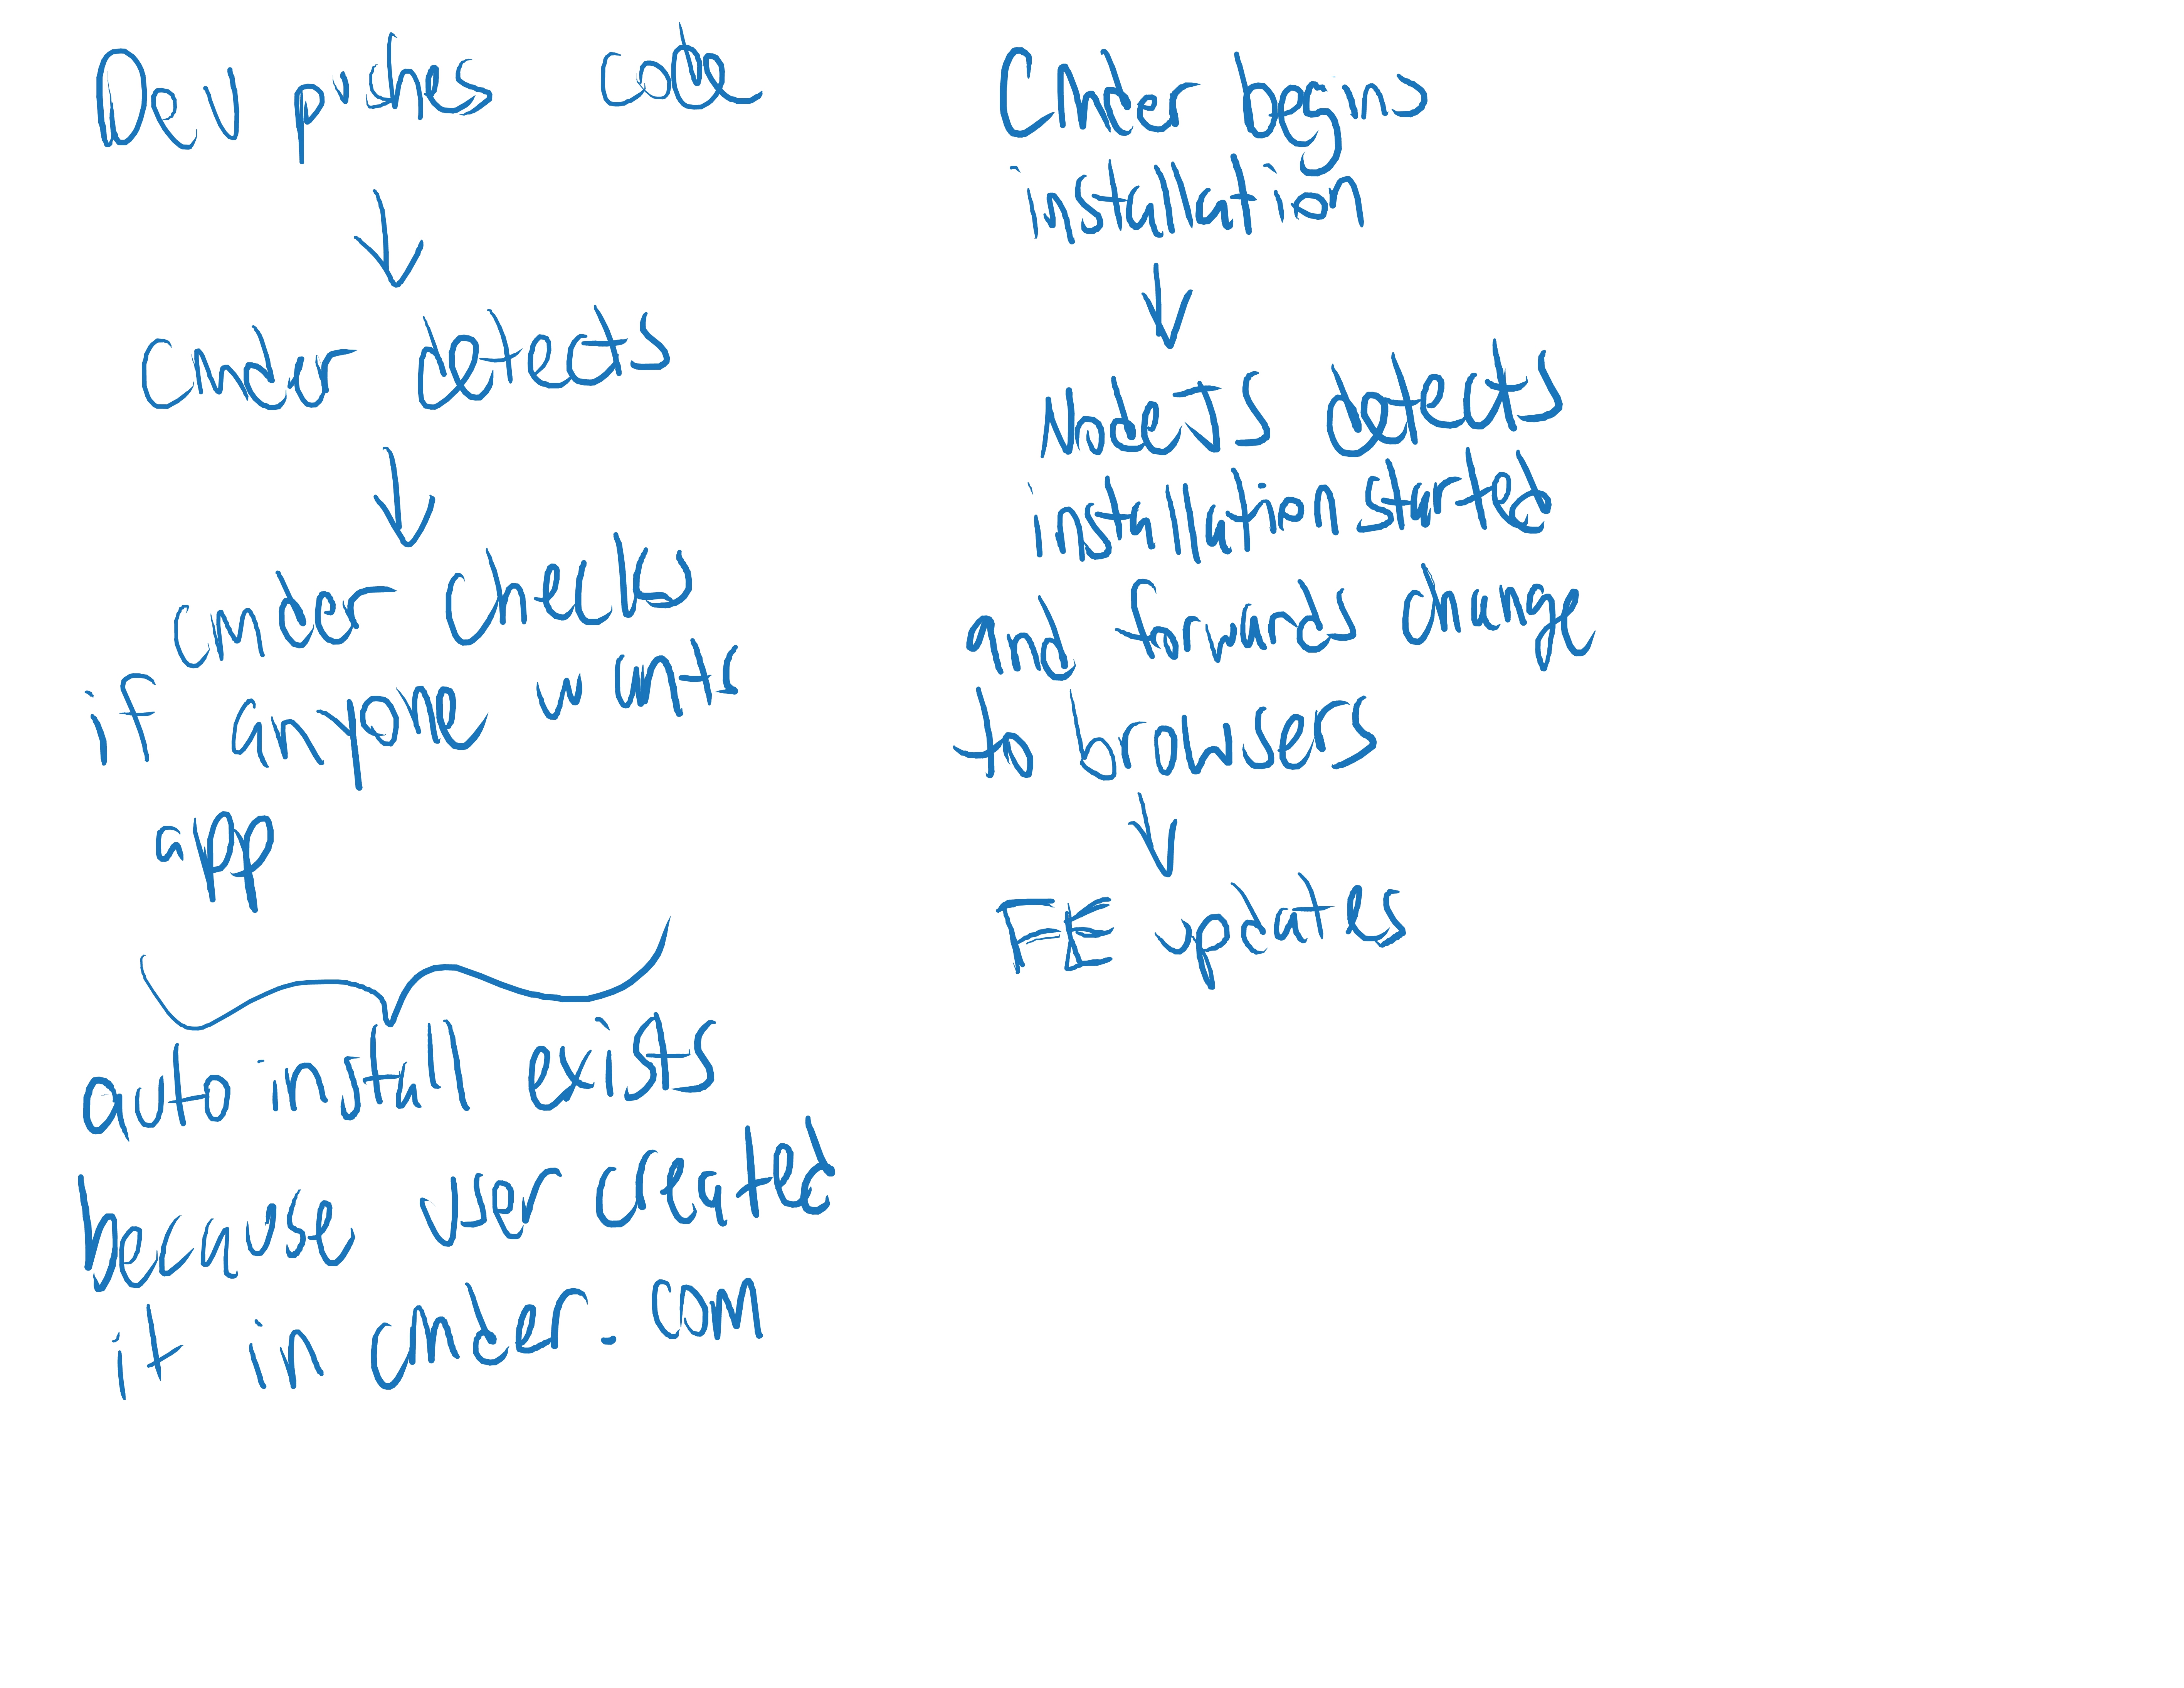 Dev pushes code
Cmder detects
cmder checks
if anyone wants
app
auto install exists
because user created
it in cmder.com
Cmder begins
installation
NodeJS detects
installation started
and forwards change
to browsers
FE updates